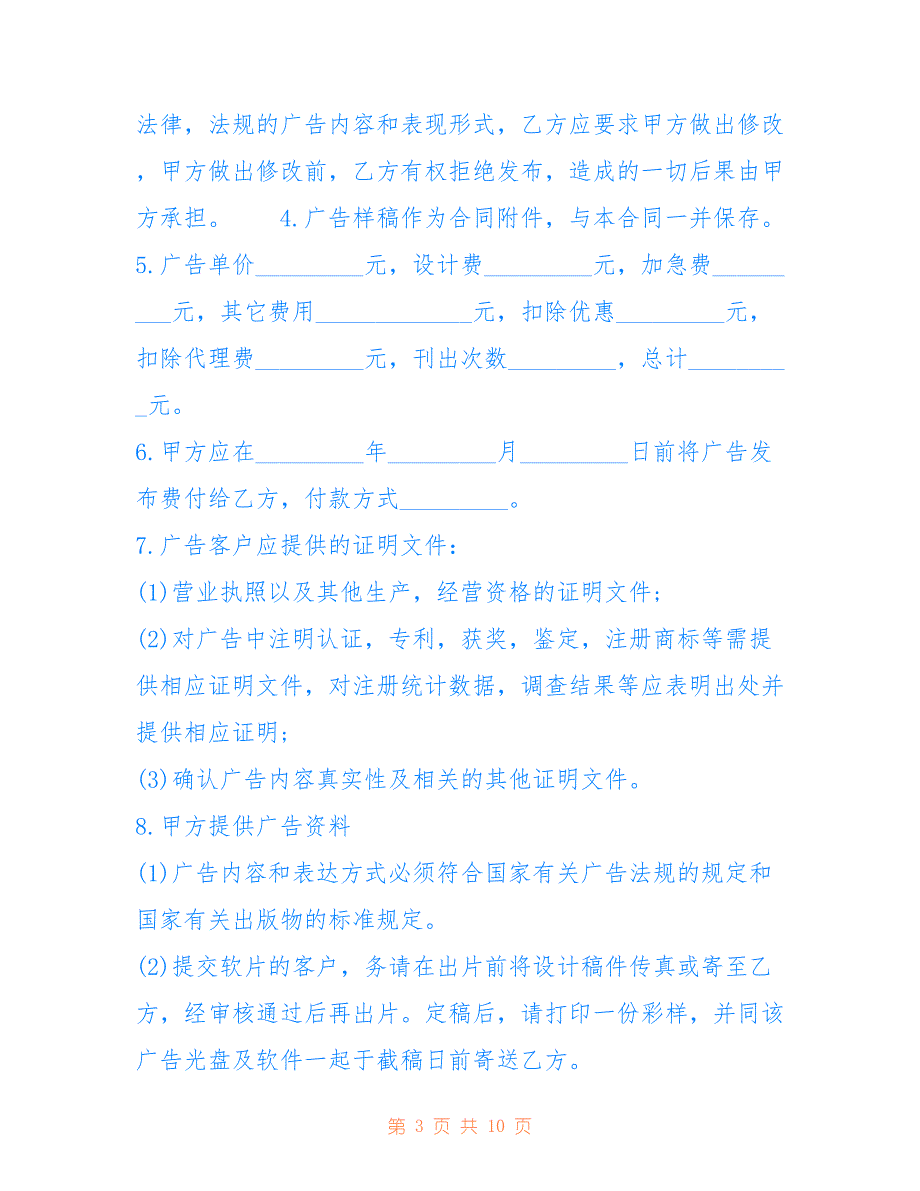 法律，法规的广告内容和表现形式，乙方应要求甲方做出修改
，甲方做出修改前，乙方有权拒绝发布，造成的一切后果由甲
方承担。　　4.广告样稿作为合同附件，与本合同一并保存。
5.广告单价_________元，设计费_________元，加急费______
___元，其它费用_____________元，扣除优惠_________元，
扣除代理费_________元，刊出次数_________，总计________
_元。
6.甲方应在_________年_________月_________日前将广告发
布费付给乙方，付款方式_________。
7.广告客户应提供的证明文件：
(1)营业执照以及其他生产，经营资格的证明文件;
(2)对广告中注明认证，专利，获奖，鉴定，注册商标等需提
供相应证明文件，对注册统计数据，调查结果等应表明出处并
提供相应证明;
(3)确认广告内容真实性及相关的其他证明文件。
8.甲方提供广告资料
(1)广告内容和表达方式必须符合国家有关广告法规的规定和
国家有关出版物的标准规定。
(2)提交软片的客户，务请在出片前将设计稿件传真或寄至乙
方，经审核通过后再出片。定稿后，请打印一份彩样，并同该
广告光盘及软件一起于截稿日前寄送乙方。
第 3 页 共 10 页